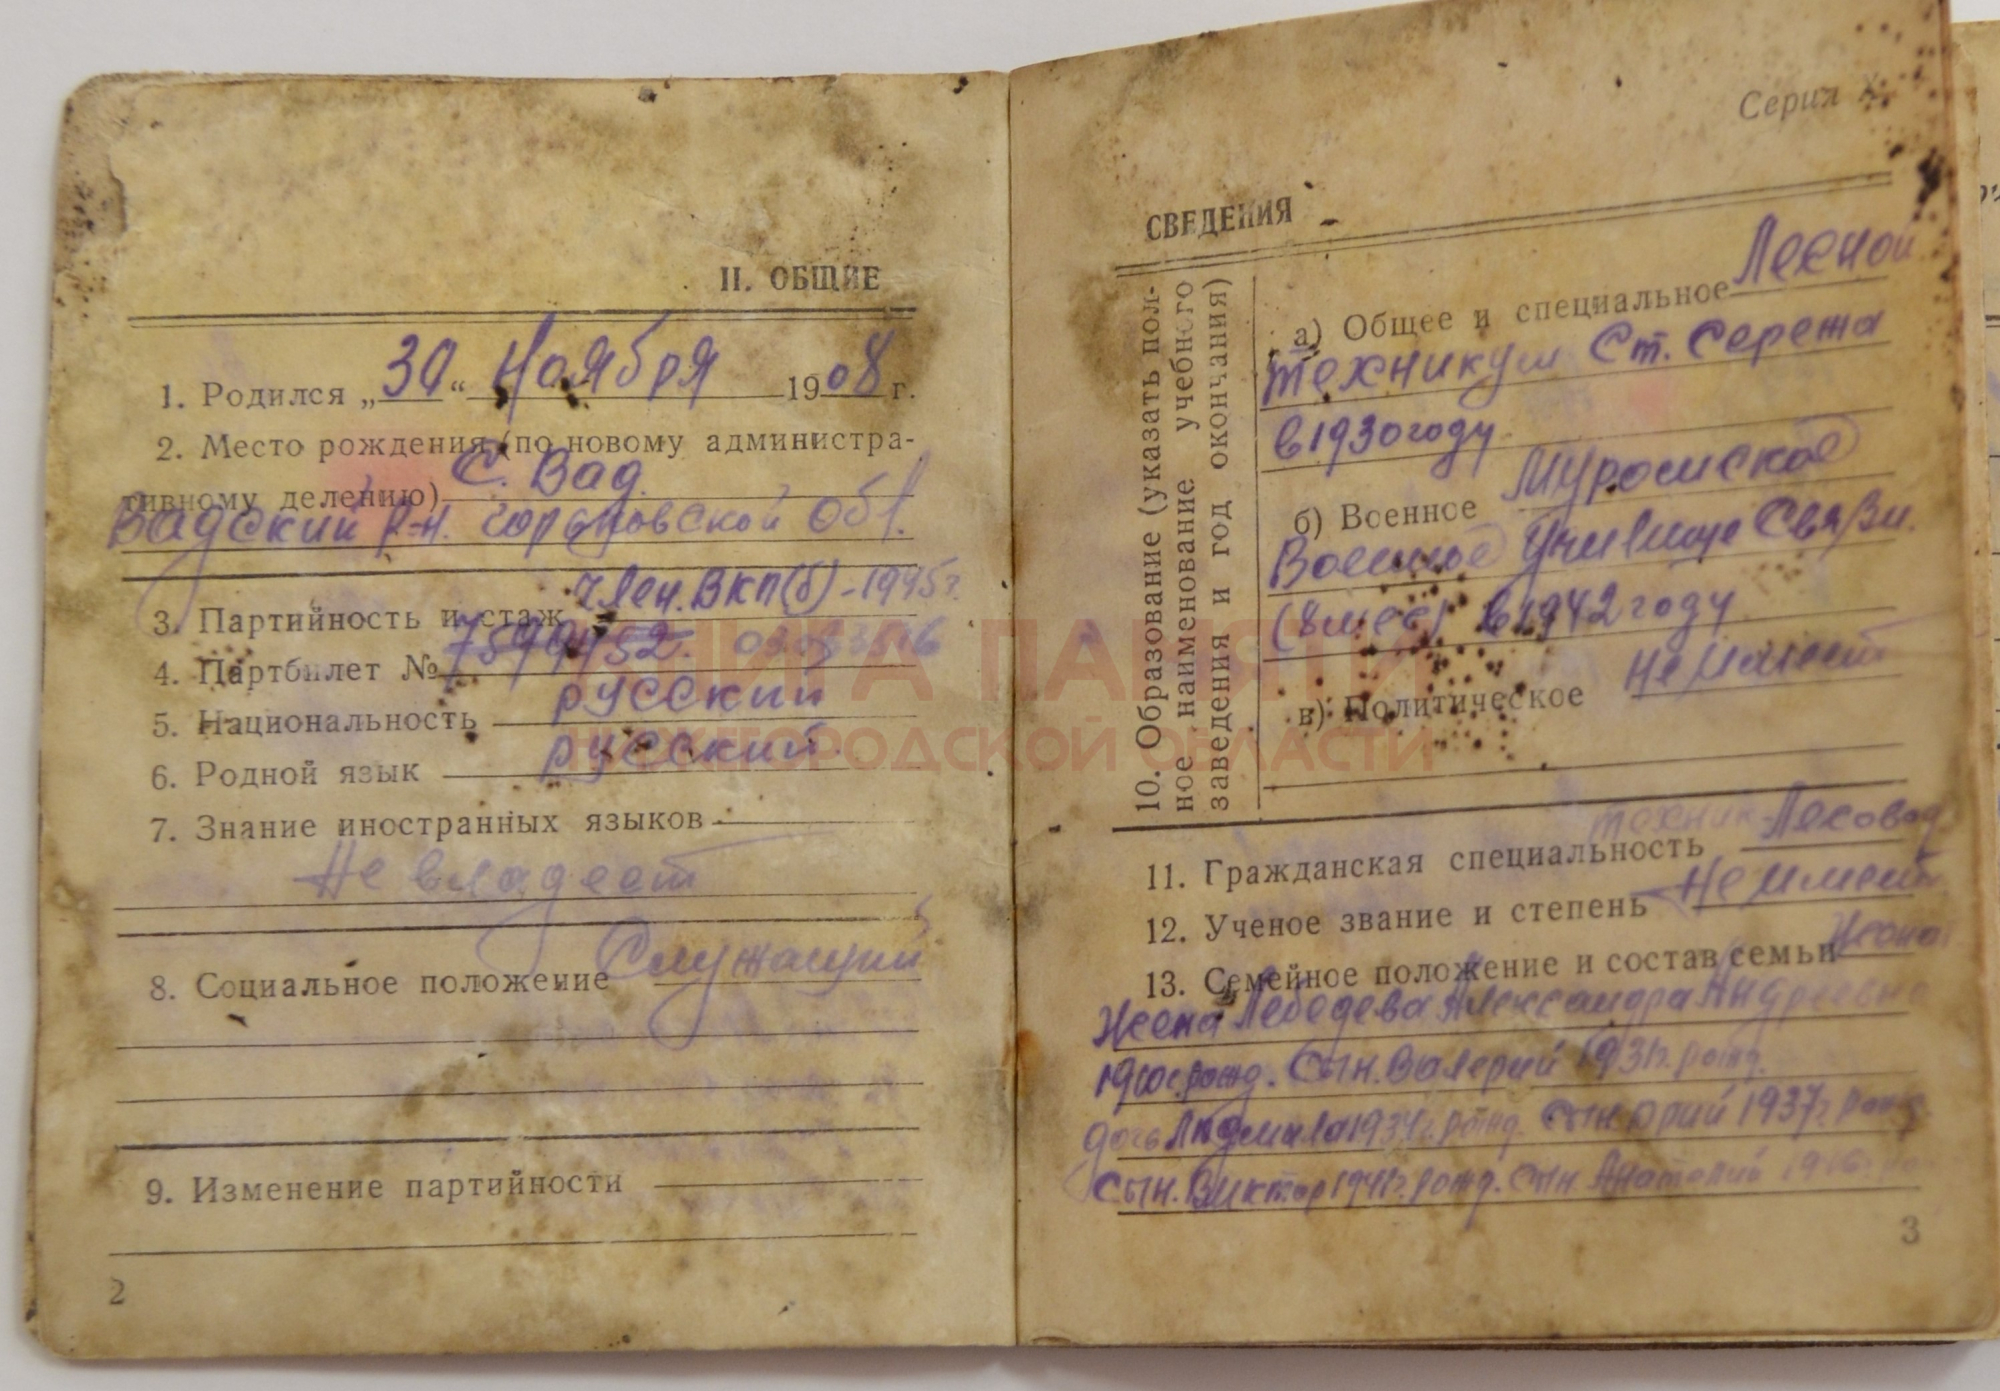 II. ОБЩИЕ
1. Родился „30“ Ноября 1908 г.
2. Место рождения (по новому администра-
тивному делению) С. Вад.
Вадский р-н. Горьковской Обл.
3. Партийность и стаж Член. ВКП(б) - 1945 г.
4. Партбилет №
5. Национальность русский
6. Родной язык русский.
7. Знание иностранных языков
Не владеет
8. Социальное положение Служащий
9. Изменение партийности
2
Серия Х
СВЕДЕНИЯ
10. Образование (указать пол-
ное наименование учебного
заведения и год окончания)
а) Общее и специальное Лесной
техникум Ст. Сережа
в 1930 году
б) Военное Муромское
Военное Училище Связи.
(8 мес) в 1942 году
в) Политическое Не имеет
11. Гражданская специальность техник-Лесовод
12. Ученое звание и степень Не имеет
13. Семейное положение и состав семьи Жена
Жена Лебедева Александра Андреевна
рожд. Сын. Валерий 1931 г. рожд.
дочь Людмила 1934 г. рожд. Сын Юрий 1937 г. рожд
Сын. Виктор 1941 г. рожд. Сын Анатолий 1946 г.
3
КНИГА ПАМЯТИ
НИЖЕГОРОДСКОЙ ОБЛАСТИ